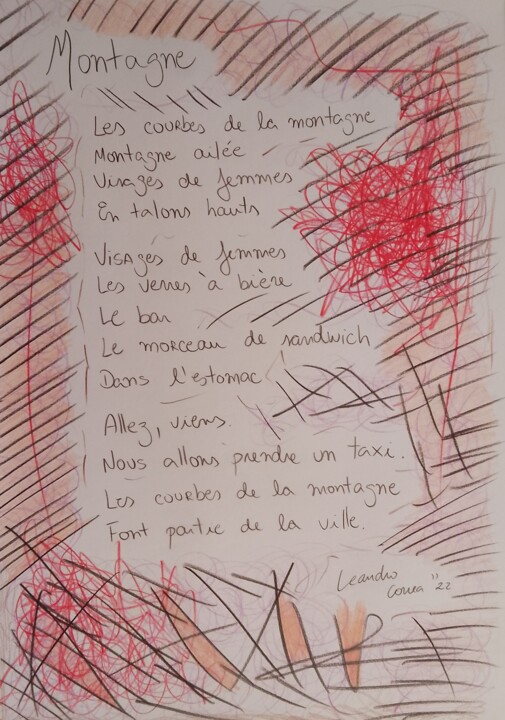 Montagne
Les courbes de la montagne
Montagne ailée
Visages de femmes
En talons hauts
Visages de femmes
Les verres à bière
Le bar
Le morceau de sandwich
Dans l'estomac
Allez, viens.
Nous allons prendre un taxi.
Les courbes de la montagne
Font partie de la ville.
Leandro
Correa "22